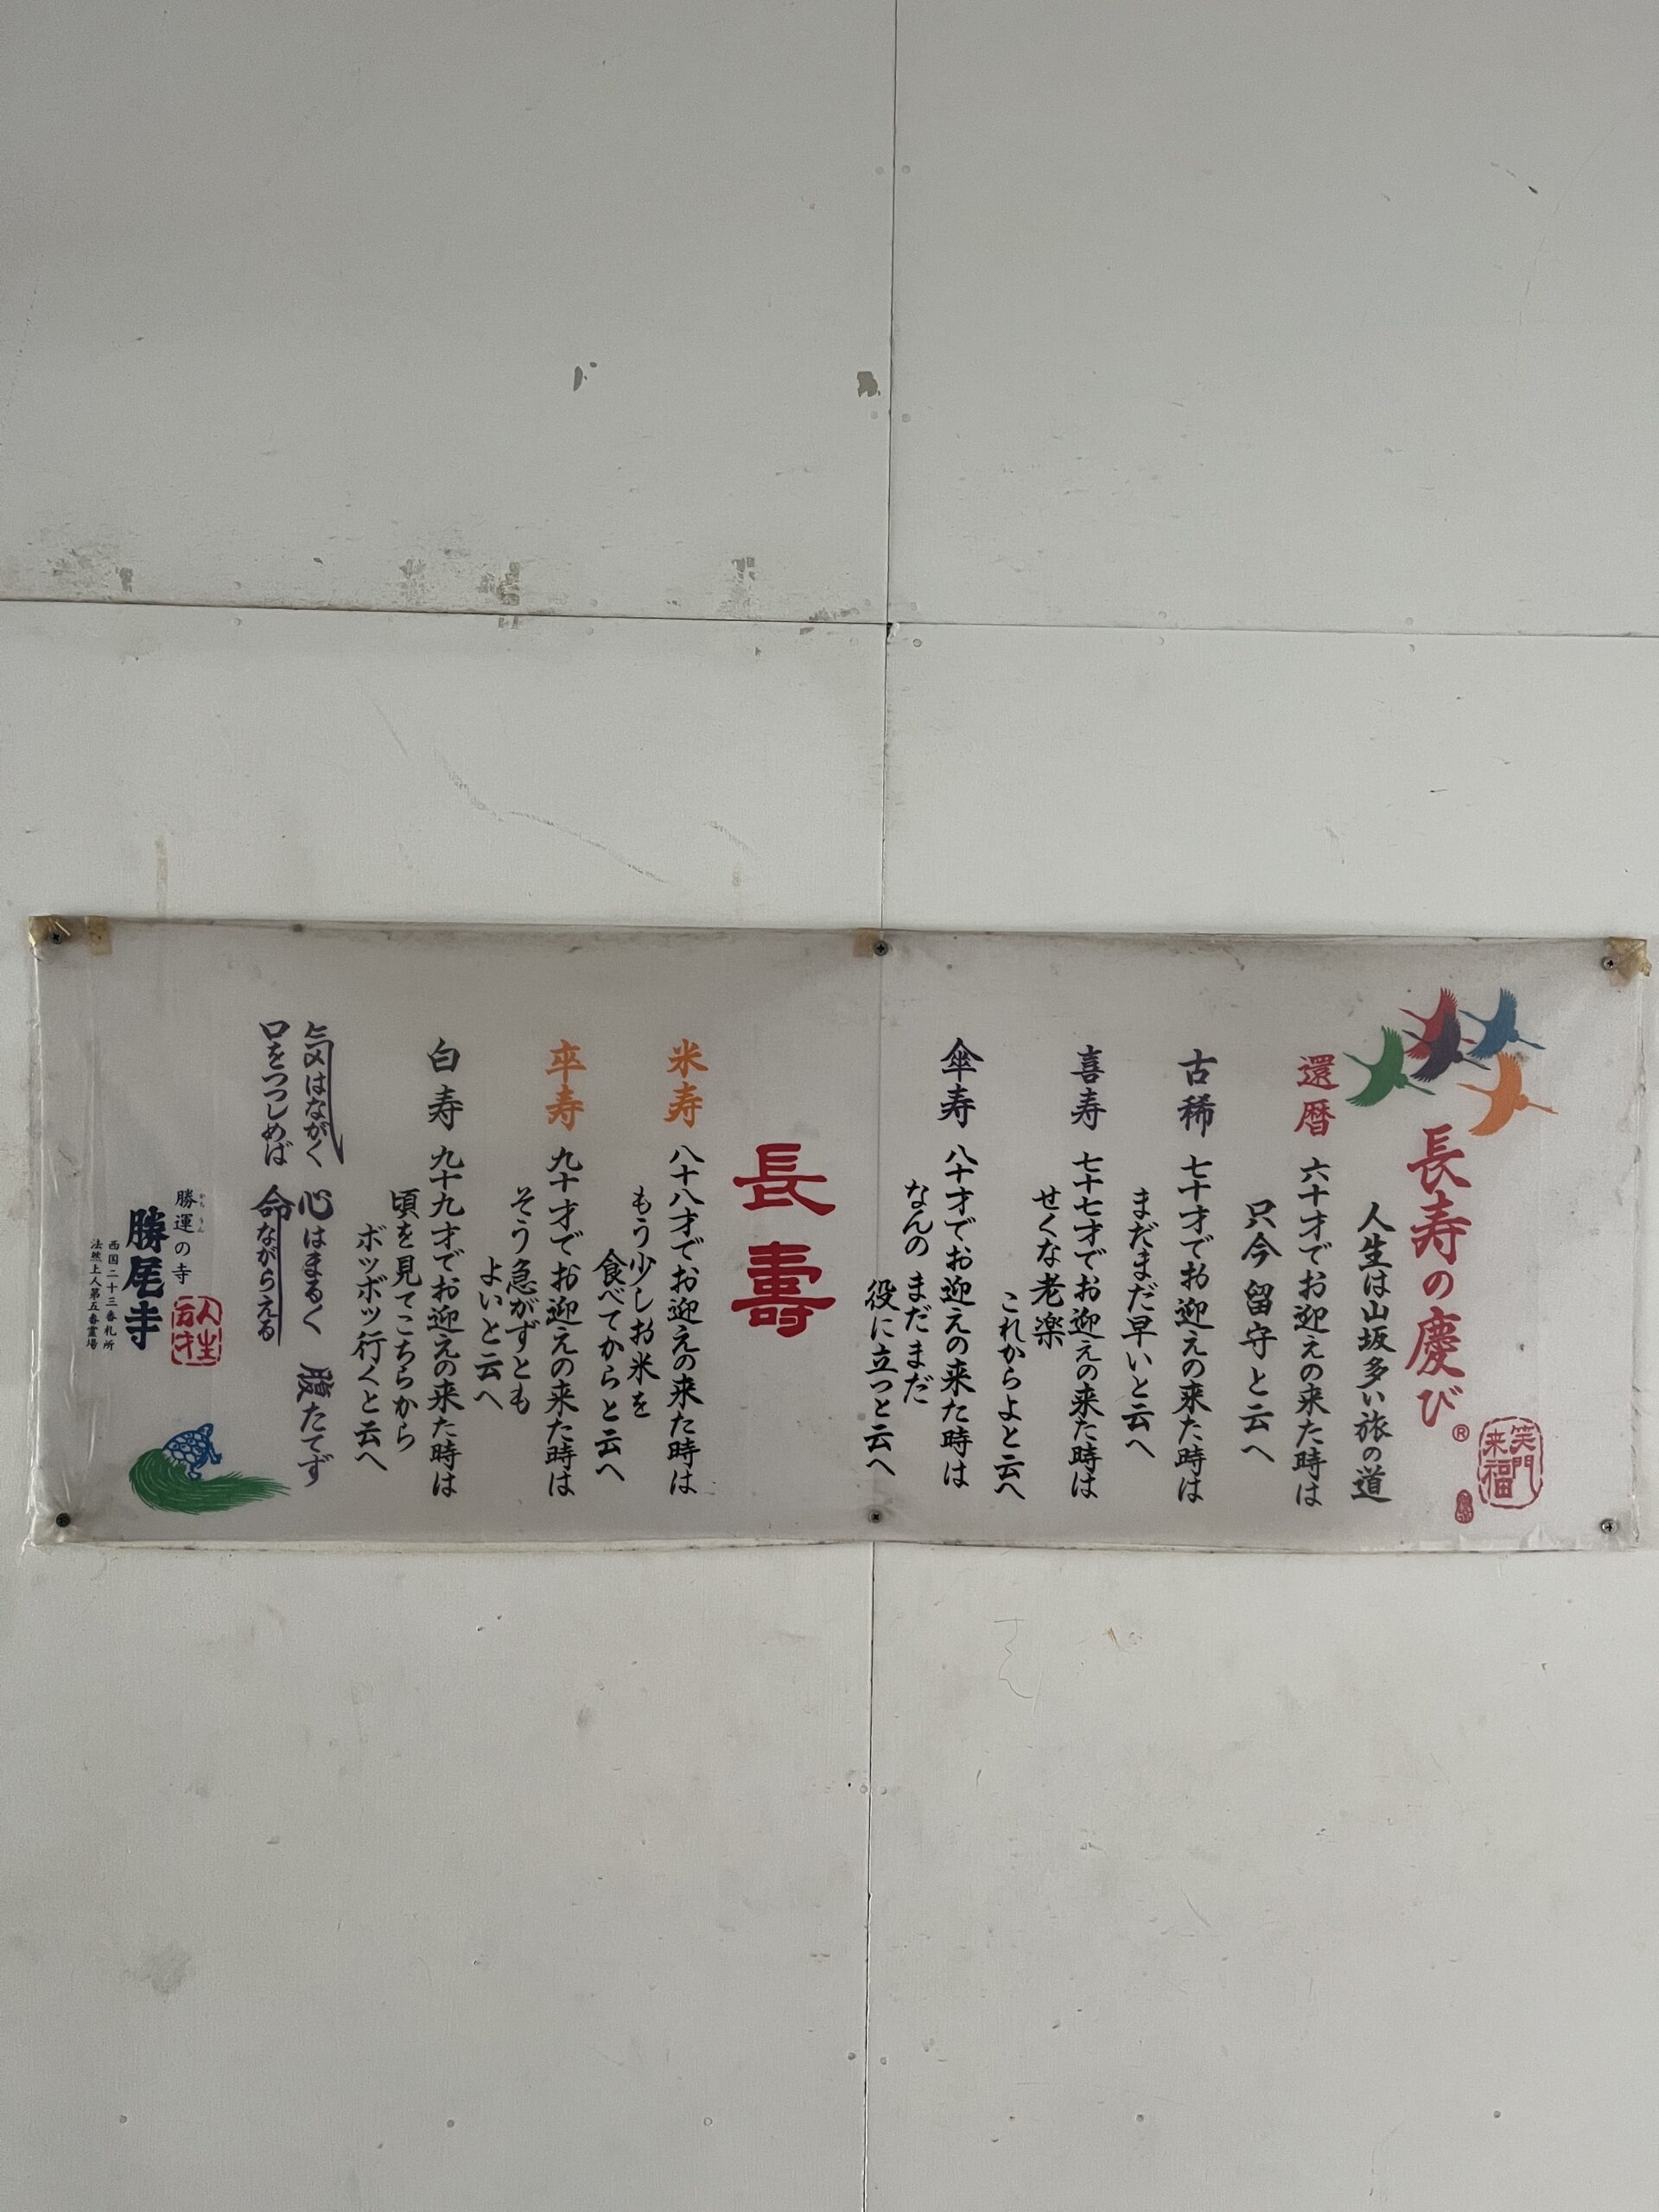 長寿の慶び®
笑門来福
人生は山坂多い旅の道
還暦 六十才でお迎えの来た時は
只今留守と云へ
古稀 七十才でお迎えの来た時は
まだまだ早いと云へ
喜寿 七十七才でお迎えの来た時は
せくな老楽
これからよと云へ
傘寿 八十才でお迎えの来た時は
なんのまだまだ
役に立つと云へ
長壽
米寿 八十八才でお迎えの来た時は
もう少しお米を
食べてからと云へ
卒寿 九十才でお迎えの来た時は
そう急がずとも
よいと云へ
白寿 九十九才でお迎えの来た時は
頃を見てこちらから
ボツボツ行くと云へ
気はながく 心はまるく 腹たてず
口をつつしめば 命ながらえる
勝運の寺
かちうん
勝尾寺
西国二十三番札所
法然上人第五番霊場